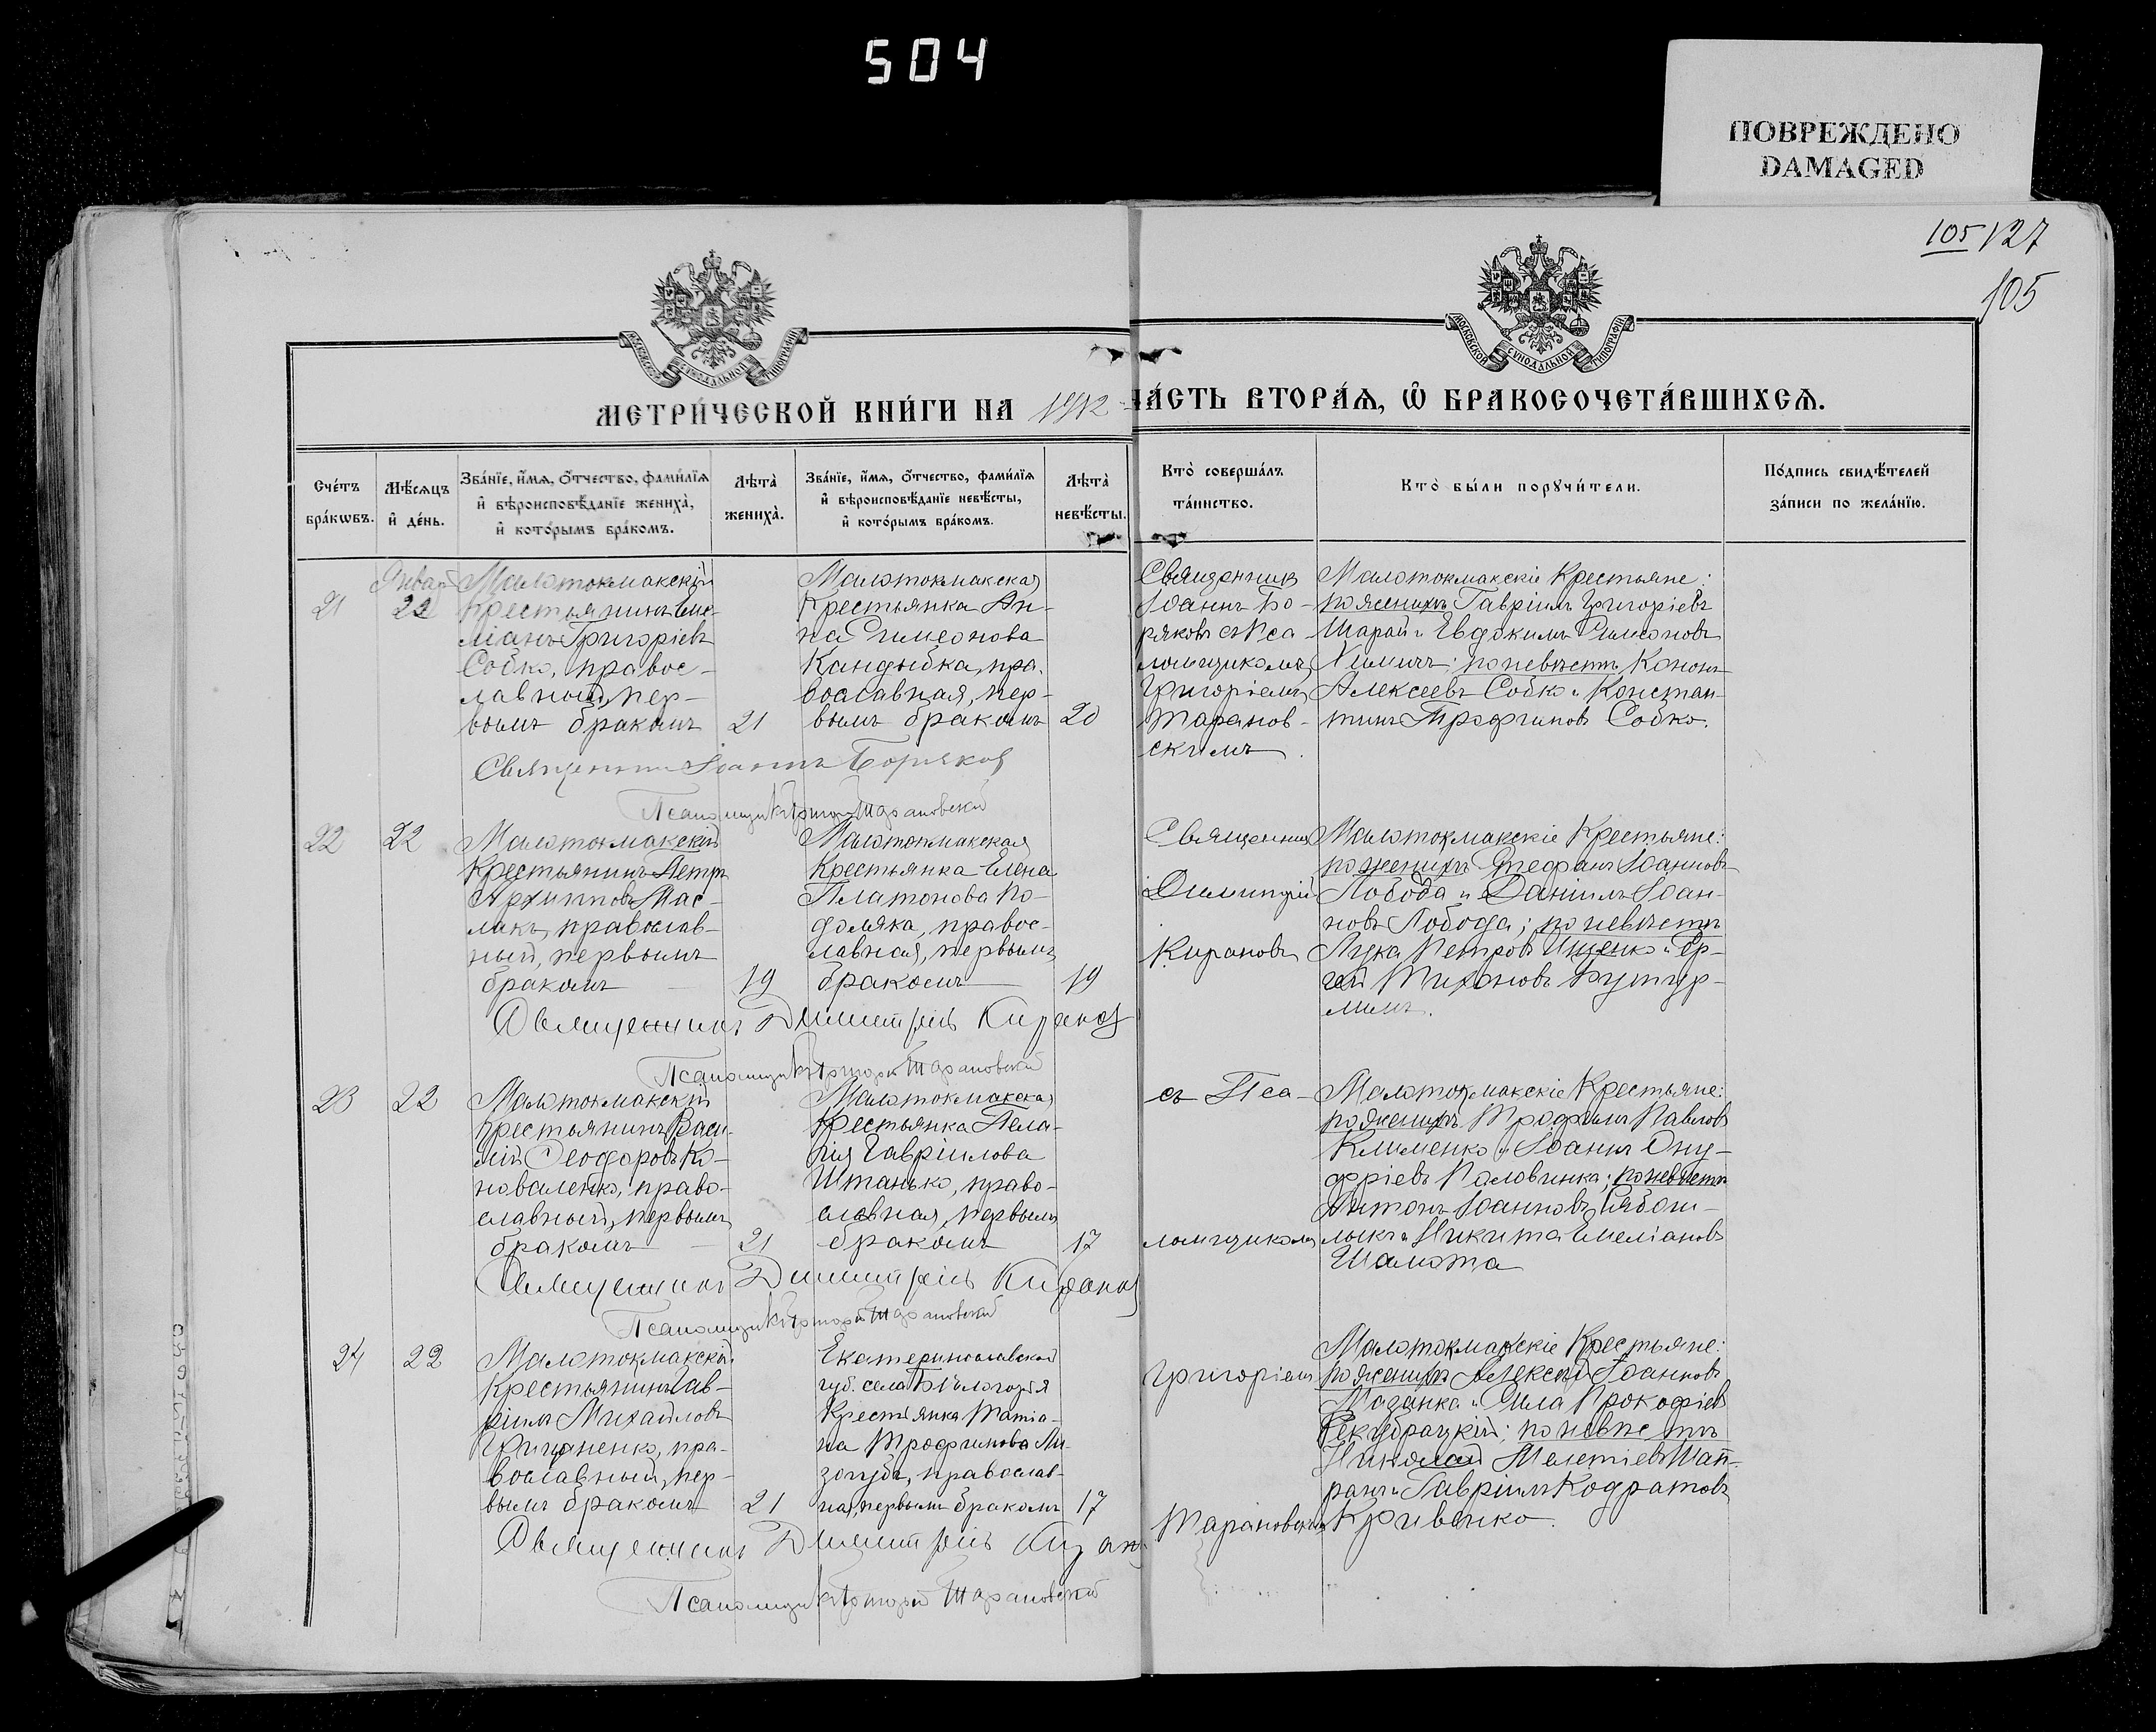 504
ПОВРЕЖДЕНО
DAMAGED
105 127
105
МОСКОВСКОЙ СУНОДАЛЬНОЙ ТИПОГРАФІИ
МОСКОВСКОЙ СУНОДАЛЬНОЙ ТИПОГРАФІИ
МЕТРИ́ЧЕСКОЙ КНИ́ГИ НА 1912
ЧА́СТЬ ВТОРА́Я, Ѽ БРАКОСОЧЕТА́ВШИХСЯ.
Сче́тъ
бра́кѡвъ.
Мѣ́сяцъ
и҆ де́нь.
Зва́нїе, и҆́мя, ѻ҆́тчество, фами́лїя
и҆ вѣроисповѣ́данїе жениха̀,
и҆ кото́рымъ бра́комъ.
Лѣта̀
жениха̀.
Зва́нїе, и҆́мя, ѻ҆́тчество, фами́лїя
и҆ вѣроисповѣ́данїе невѣ́сты,
и҆ кото́рымъ бра́комъ.
Лѣта̀
невѣ́сты.
Кто̀ соверша́лъ
та́инство.
Кто̀ бы́ли порꙋчи́тели.
По́дпись свидѣ́телей
за́писи по жела́нїю.
21
Январь
22
Малотокмакскій
крестьянинъ Еме-
ліанъ Григоріевъ
Собко, правос-
лавный, пер-
вымъ бракомъ
21
Малотокмакская
крестьянка Ан-
на Симеонова
Кандыбка, пра-
вославная, пер-
вымъ бракомъ
20
Священникъ
Іоаннъ Бо-
ряковъ съ Пса-
ломщикомъ
Григоріемъ
Таранов-
скимъ.
Малотокмакскіе Крестьяне:
по женихѣ Гавріилъ Григоріевъ
Шарай и Евдокимъ Симеоновъ
; по невѣстѣ Кононъ
Алексеевъ Собко и Констан-
тинъ Трофимовъ Собко.
Священникъ Іоаннъ Боряковъ
Псаломщикъ Григорій Тарановскій
22
22
Малотокмакскій
Крестьянинъ Петръ
Архиповъ Мас-
лакъ, православ-
ный, первымъ
бракомъ
19
Малотокмакская
Крестьянка Елена
Платонова По-
доляка, правос-
лавная, первымъ
бракомъ
19
Священникъ
Димитрій
Кирановъ
Малотокмакскіе Крестьяне:
по женихѣ Стефанъ Іоанновъ
Лобода и Даніилъ Іоан-
новъ Лобода; по невѣстѣ
Лука Петровъ Ищенко и Сер-
гей Тихоновъ Бутур-
лимъ.
Священникъ Димитрій Кирановъ
Псаломщикъ Григорій Тарановскій
23
22
Малотокмакскій
крестьянинъ Васи-
лій Ѳеодоровъ Ко-
новаленко, право-
славный, первымъ
бракомъ
21
Малотокмакская
крестьянка Пела-
гія Гавріилова
Штанько, право-
славная, первымъ
бракомъ
17
съ Пса-
ломщикомъ
Малотокмакскіе Крестьяне:
по женихѣ Трофимъ Павловъ
Клименко и Іоаннъ Ону-
фріевъ Половинка; по невѣстѣ
Антонъ Іоанновъ Рябош-
лыкъ и Никита Емеліановъ
Шамота
Священникъ Димитрій Кирановъ
Псаломщикъ Григорій Тарановскій
24
22
Малотокмакскій
Крестьянинъ Гав-
ріилъ Михайловъ
Грицаненко, пра-
вославный, пер-
вымъ бракомъ
21
Екатеринославской
губ. села Бѣлогорья
Крестьянка Татіа-
на Трофимова Ли-
зогубъ, православ-
ная, первымъ бракомъ
17
Григоріемъ
Тарановскимъ
Малотокмакскіе Крестьяне:
по женихѣ Алексѣй Іоанновъ
Мазанка и Сила Прокофіевъ
; по невѣстѣ
Николай Мелетіевъ Шап-
ранъ и Гавріилъ Кодратовъ
Кривенко.
Священникъ Димитрій Киранов
Псаломщикъ Григорій Тарановскій